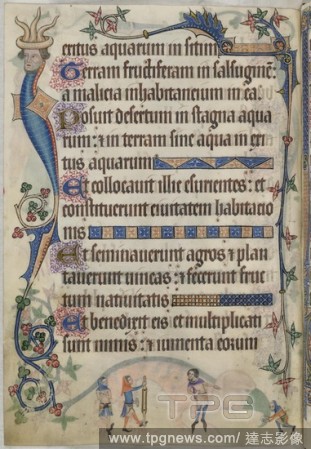 exitus aquarum in sitim
Terram fructiferam in salsuginē:
a malicia inhabitancium in ea
Posuit desertum in stagna aqua
rum: et in terram sine aqua in exi
tus aquarum
Et collocauit illic esurientes: et
constituerunt ciuitatem habitacio
nis
Et seminauerunt agros et plan
tauerunt uineas: et fecerunt fruc
tum natiuitatis
Et benedixit eis et multiplicati
sunt nimis: et iumenta eorum
TPG
www.tpgnews.com/ 達志影像